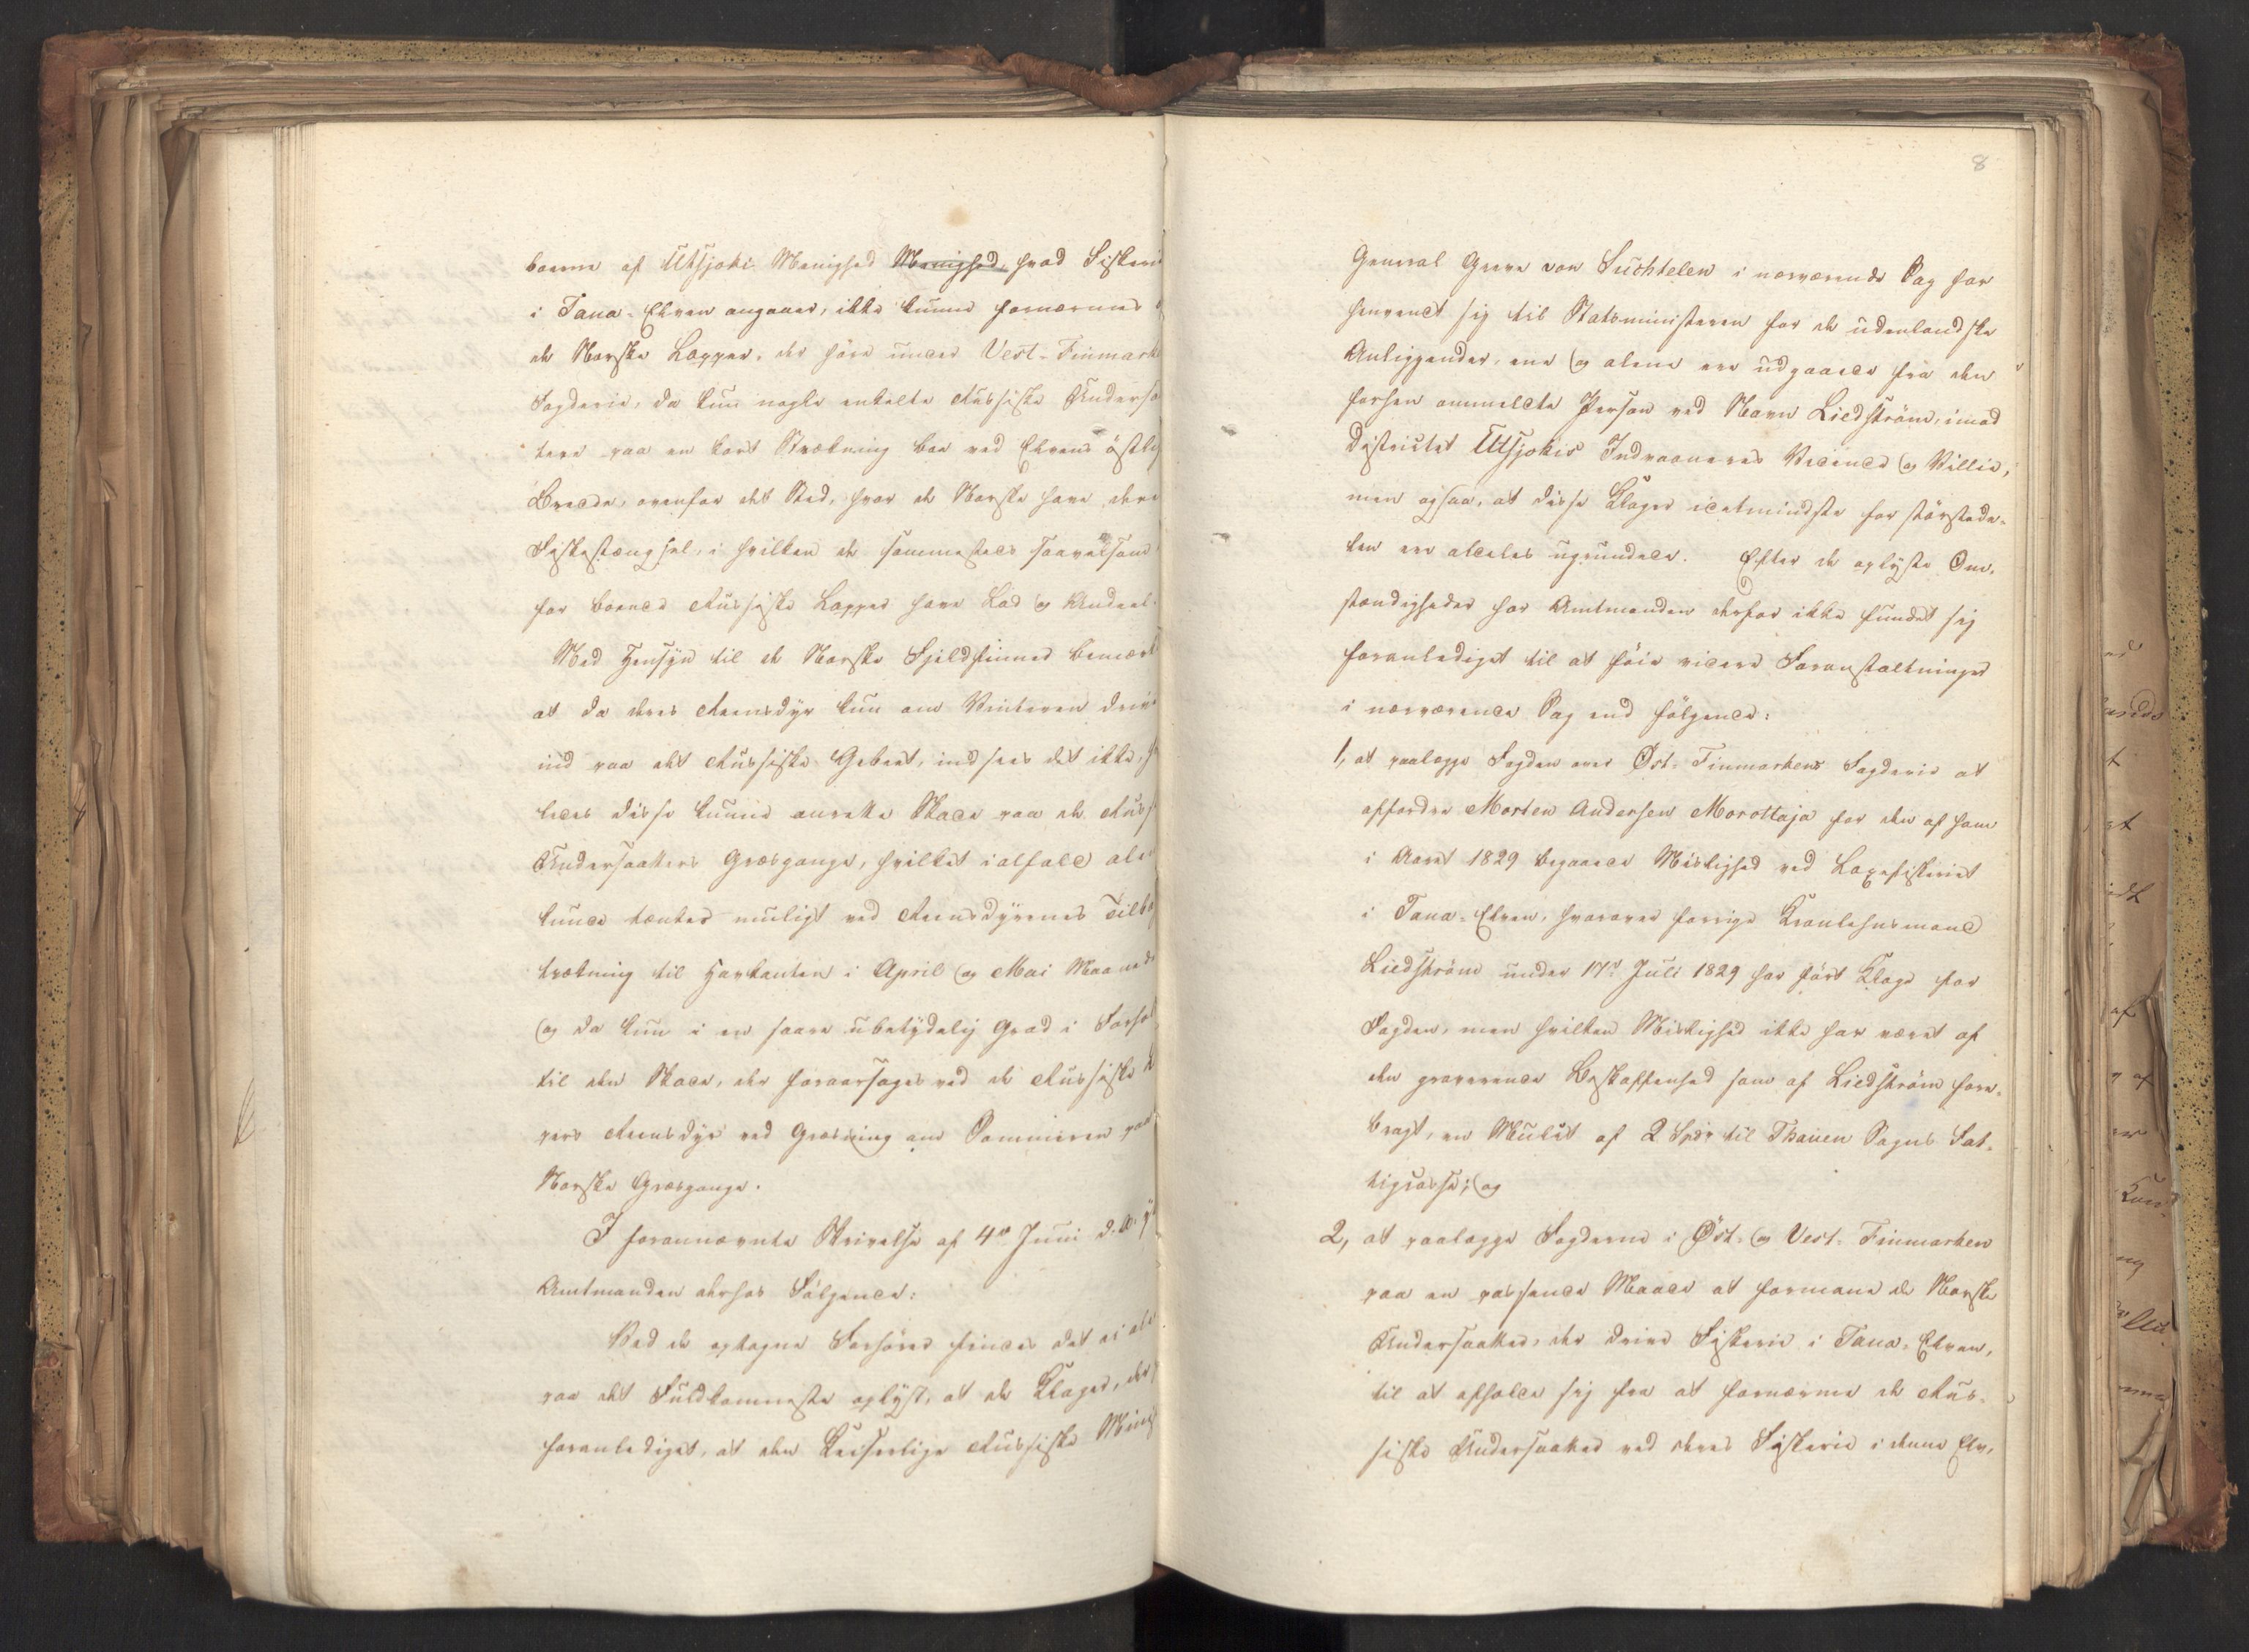 boerne af Utsjoki Menighed Menighed, hvad Fiskeri
i Tana-Elven angaaer, ikke kunne fornærmes
de Norske Lapper, der höre under Vest-Finmark
Fogderie, da kun nogle enkelte Russiske Undersa
tere paa en kort Strækning boe ved Elvens östlig
Bredde, ovenfor det Sted, hvor de Norske have dere
Fiskestængsel, i hvilken de sammesteds saavelsom
for boende Russiske Lapper have Lod og Andeel.
Med Hensyn til de Norske Fjeldfinner bemærk
at da deres Reensdyr kun om Vinteren drive
ind paa det Russiske Gebeet, indsees det ikke, h
ledes disse kunne anrette Skade paa de Russi
Undersaatters Græsgange, hvilket ialfald alen
kunde tænkes muligt ved Reensdyrenes Tilba
trækning til Havkanten i April og Mai Maaneder
og da kun i en saare ubetydelig Grad i Forhol
til den Skade, der foraarsages ved de Russiske
pers Reensdyr ved Græsning om Sommeren paa
Norske Græsgange.
I forannævnte Skrivelse af 4de Juni d. A.
Amtmanden derhos Fölgende:
Ved de optagne Forhörer findes det at
paa det Fuldkomneste oplyst, at de Klager, der
foranlediget, at den Keiserlige Russiske Minis
8
General Greve von Suchtelen i nærværende Sag har
henvendt sig til Statsministeren for de udenlandske
Anliggender, ene og alene ere udgaaede fra den
forhen ommeldte Person ved Navn Liedström, imod
Districtet Utsjokis Indvaaneres Vidende og Villie,
men ogsaa, at disse Klager idetmindste for störstede-
len ere aldeles ugrundede. Efter de oplyste Om-
stændigheder har Amtmanden derfor ikke fundet sig
foranlediget til at föie videre Foranstaltninger
i nærværende Sag end fölgende:
1, at paalægge Fogden over Öst-Finmarkens Fogderie at
affordre Morten Andersen Morottaja for den af ham
i Aaret 1829 begaaede Mislighed ved Laxefiskeriet
i Tana-Elven, hvorover forrige Kronlehnsmand
Liedström under 17de Juli 1829 har fört Klage for
Fogden, men hvilken Mislighed ikke har været af
den graverende Beskaffenhed som af Liedström fore-
bragt, en Mulct af 2 Spdr til Thanen Sogns Fat-
tigcasse; og
2, at paalægge Fogderne i Öst- og Vest-Finmarken
paa en passende Maade at formane de Norske
Undersaatter, der drive Fiskerie i Tana-Elven,
til at afholde sig fra at fornærme de Rus-
siske Undersaatter ved deres Fiskerie i denne Elv,